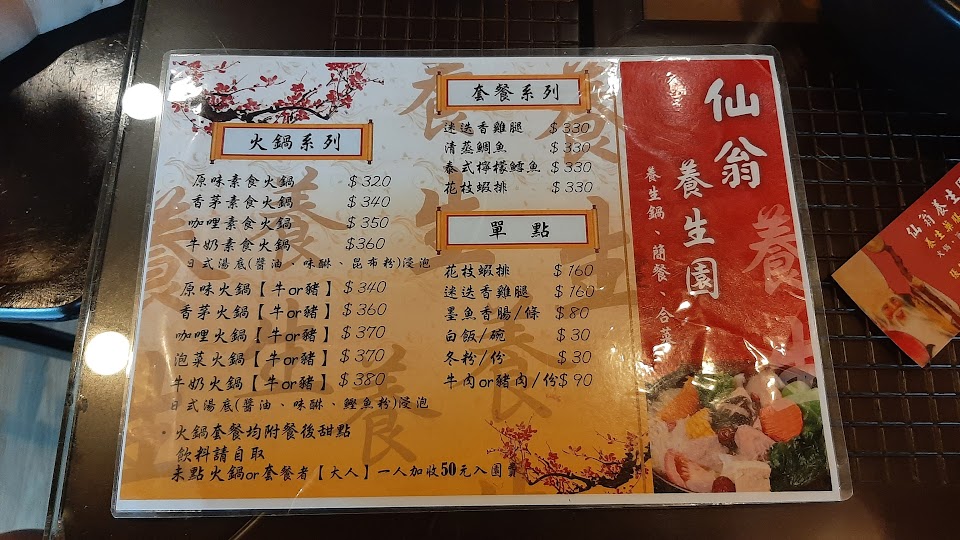 火鍋系列
原味素食火鍋 $320
香茅素食火鍋 $340
咖哩素食火鍋 $350
牛奶素食火鍋 $360
日式湯底(醬油、味醂、昆布粉)浸泡
原味火鍋【牛or豬】 $340
香茅火鍋【牛or豬】 $360
咖哩火鍋【牛or豬】 $370
泡菜火鍋【牛or豬】 $370
牛奶火鍋【牛or豬】 $380
日式湯底(醬油、味醂、鰹魚粉)浸泡
·火鍋套餐均附餐後甜點
飲料請自取
未點火鍋or套餐者【大人】一人加收50元入園費
套餐系列
迷迭香雞腿 $330
清蒸鯛魚 $330
泰式檸檬鱈魚 $330
花枝蝦排 $330
單點
花枝蝦排 $160
迷迭香雞腿 $160
墨魚香腸/條 $80
白飯/碗 $30
冬粉/份 $30
牛肉or豬肉/份$90
仙翁
養生園
養生鍋、簡餐、合菜
養生
仙翁養生園